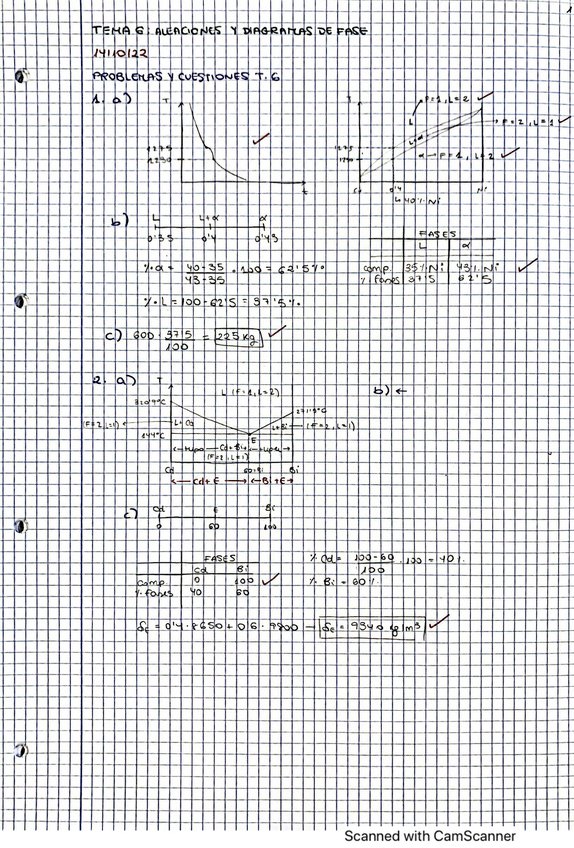 1
TEMA 6: ALEACIONES Y DIAGRAMAS DE FASE
14/10/22
PROBLEMAS Y CUESTIONES T.6
1. a)
T
1275
1250
t
T
1275
1250
L
F=1, L=2
L+α
F=2, L=1
α → F=1, L=2
Cu
0'4
Ni
40% Ni
b)
L L+α α
0'35 0'4 0'43
FASES
L α
comp. 35% Ni 43% Ni
% fases 37'5 62'5
% α = 40-35 / 43-35 · 100 = 62'5%
% L = 100 - 62'5 = 37'5%
c) 600 · 37'5 / 100 = 225 kg
2. a)
T
L (F=1, L=2)
b) ←
320'9°C
271'3°C
(F=2, L=1)
L+Cd
L+Bi
(F=2, L=1)
144°C
E
Cd+Bi
(F=2, L=1)
Cd
60% Bi
Bi
Cd+E
Bi+E
c)
Cd E Bi
0 60 100
FASES
Cd Bi
comp. 0 100
% fases 40 60
% Cd = 100-60 / 100 · 100 = 40%
% Bi = 60%
= 0'4 · 8650 + 0'6 · 9800
= 9340 kg/m³
Scanned with CamScanner